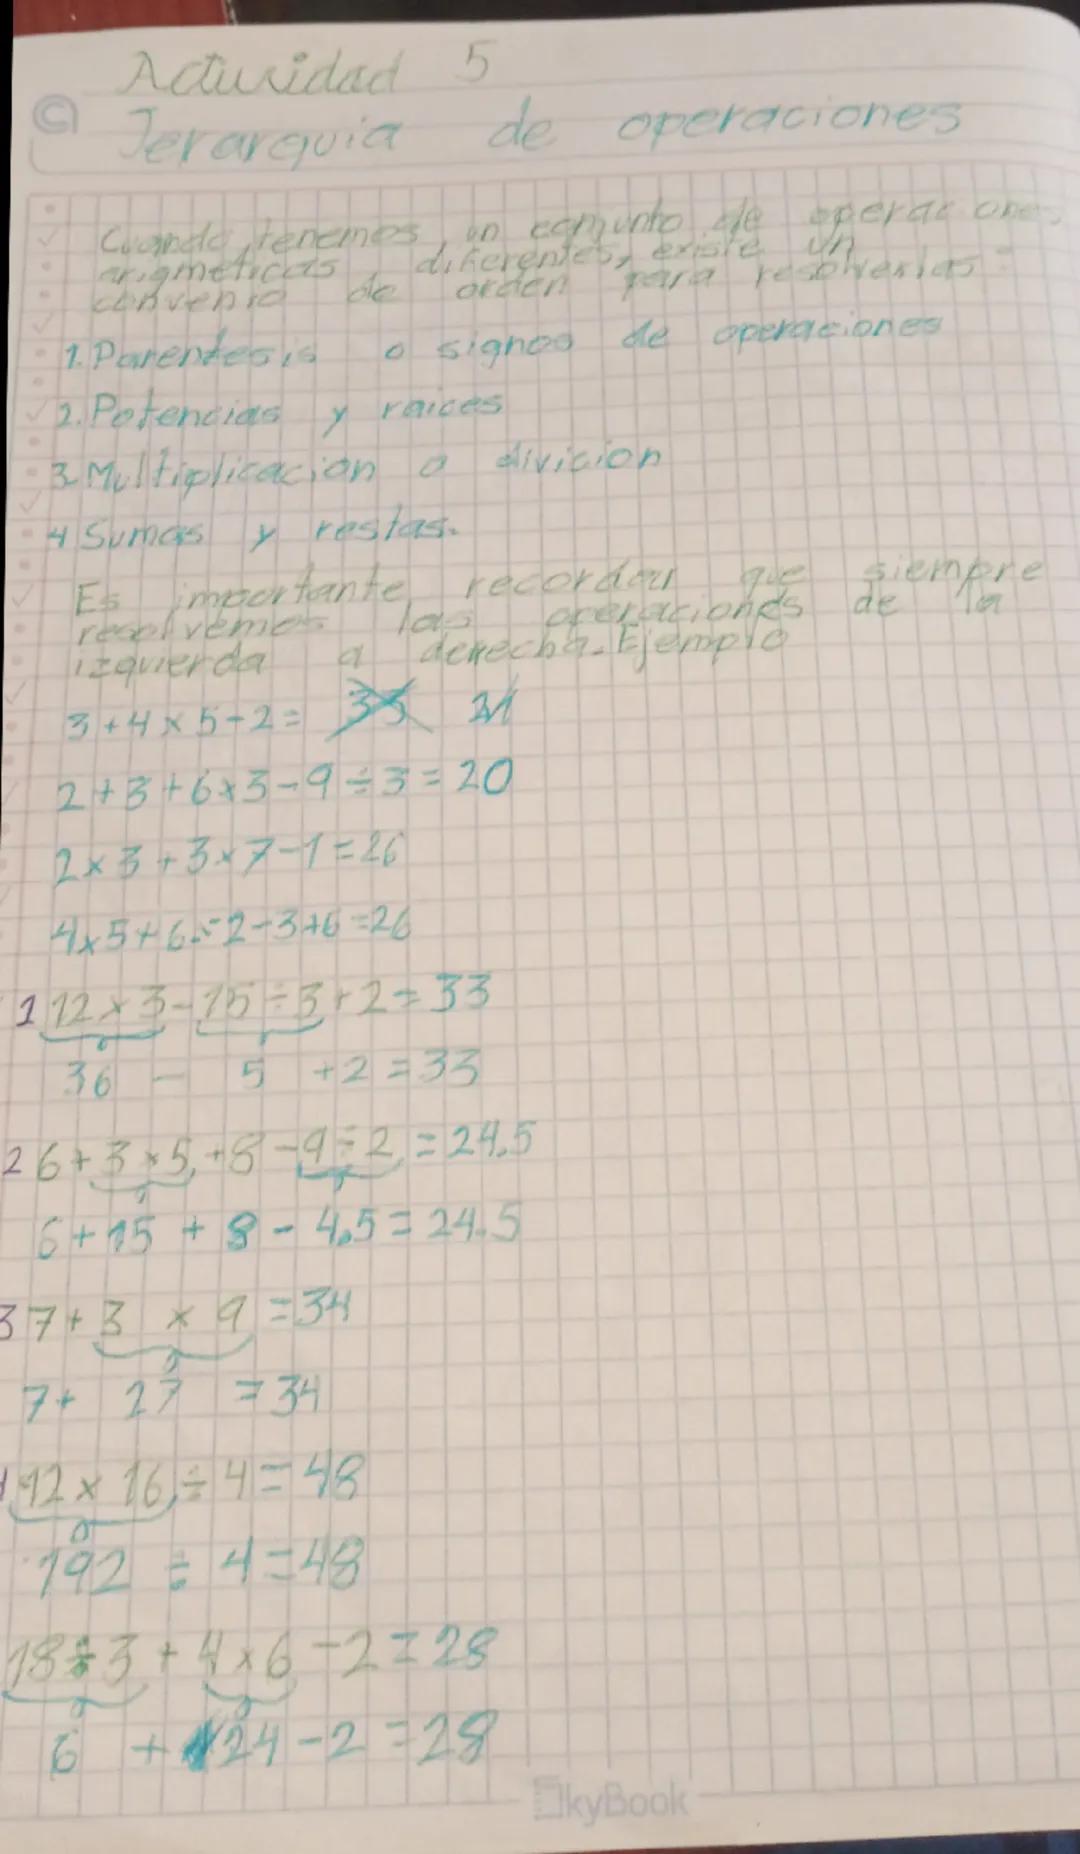 Actividad 5
Jerarquia de operaciones
Cuando tenemos un comjunto de operaciones
arigmeticas diferentes, existe un
convenio de orden para resolverlas
1. Parentesis o signos de operaciones
2. Potencias y raices
3 Multiplicacion o divicion
4 Sumas y restas.
Es importante recordar que siempre
resolvemos las operaciones de la
izquierda a derecha. Ejemplo
3+4×5-2= 35 21
2+3+6×3-9÷3=20
2×3+3×7-1=26
4×5+6÷2-3+6=26
1 12×3-15÷3+2=33
36 - 5 +2=33
2 6+3×5+8-9÷2=24.5
6+15+8-4.5=24.5
3 7+3×9=34
7+ 27 =34
12×16÷4=48
192÷4=48
18÷3+4×6-2=28
6 + 24-2=28
SkyBook